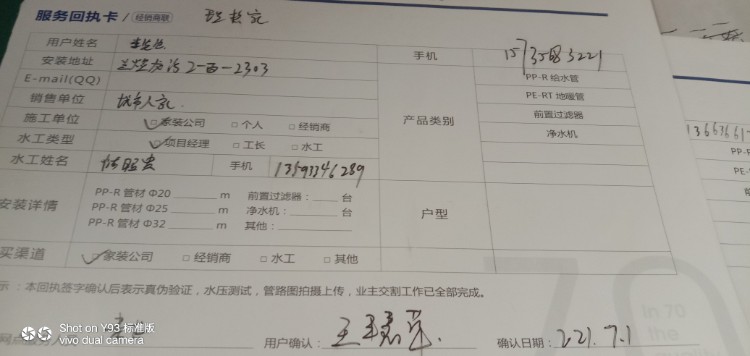 服务回执卡 / 经销商联
用户姓名 手机
安装地址 2-西-2303 PP-R 给水管
E-mail(QQ) PE-RT 地暖管
销售单位 城市人家 产品类别 前置过滤器
施工单位 ☑家装公司 □个人 □经销商 净水机
水工类型 ☑项目经理 □工长 □水工
水工姓名 手机 13593346289
安装详情 PP-R 管材 Φ20 ____ m 前置过滤器：____ 台 户型
PP-R 管材 Φ25 ____ m 净水机：____ 台
PP-R 管材 Φ32 ____ m 其他：____
买渠道 ☑家装公司 □经销商 □水工 □其他
示：本回执签字确认后表示真伪验证，水压测试，管路图拍摄上传，业主交割工作已全部完成。
用户确认： 确认日期：221.7.1
in 70
the
Shot on Y93 标准版
vivo dual camera